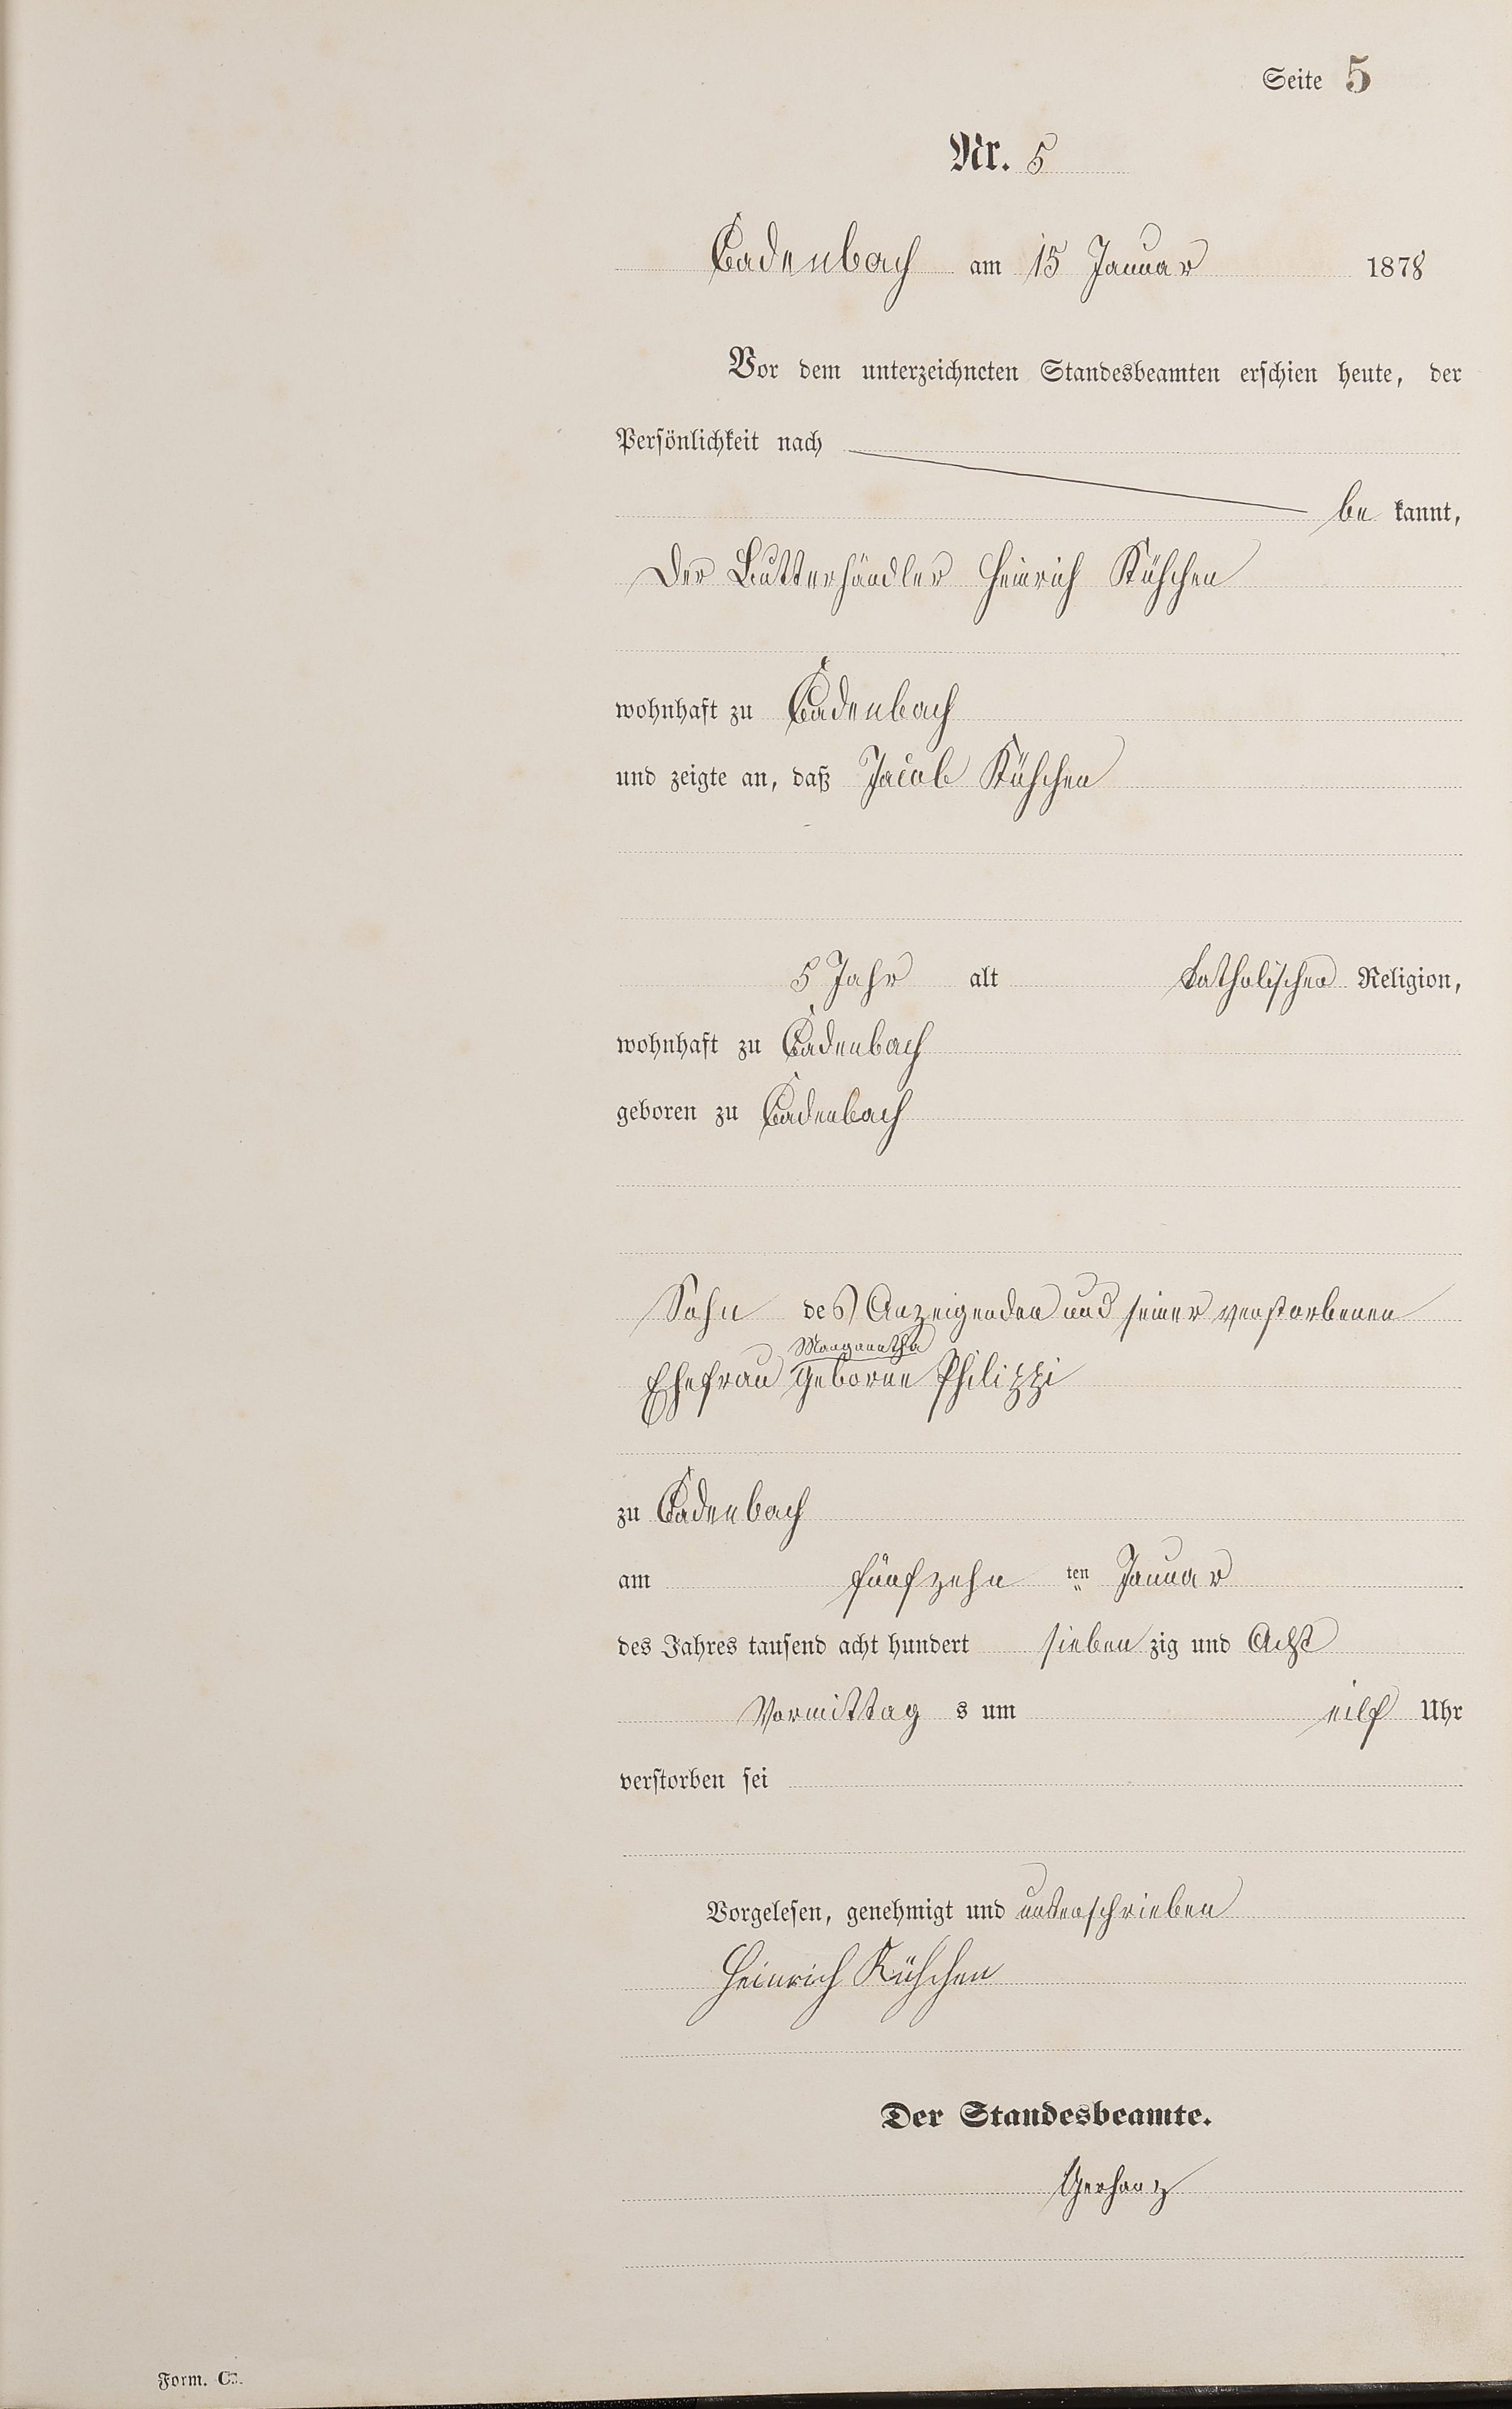 Seite 5
Nr. 5
Cadenbach am 15 Januar 1878
Vor dem unterzeichneten Standesbeamten erschien heute, der
Persönlichkeit nach
be kannt,
Der Butterhändler Heinrich Kühchen
wohnhaft zu Cadenbach
und zeigte an, daß Jacob Kühchen
5 Jahr alt katholischer Religion,
wohnhaft zu Cadenbach
geboren zu Cadenbach
Sohn des Anzeigenden und seiner verstorbenen
Margaretha
Ehefrau geborne Philippi
zu Cadenbach
am fünfzehn ten Januar
des Jahres tausend acht hundert sieben zig und Acht
Vormittag s um eilf Uhr
verstorben sei
Vorgelesen, genehmigt und unterschrieben
Heinrich Kühchen
Der Standesbeamte.
Gerharz
Form. C.